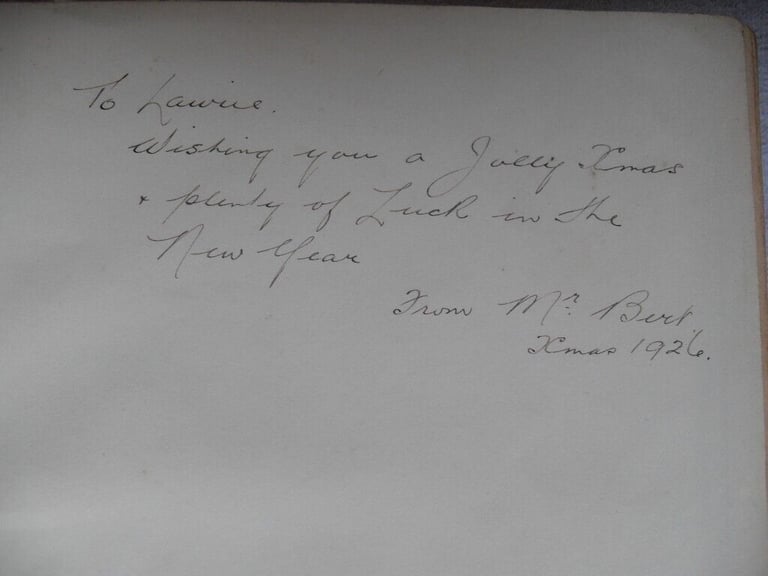 To Lawrie.
Wishing you a Jolly Xmas
& plenty of Luck in the
New Year
From Mr. Bert.
Xmas 1926.